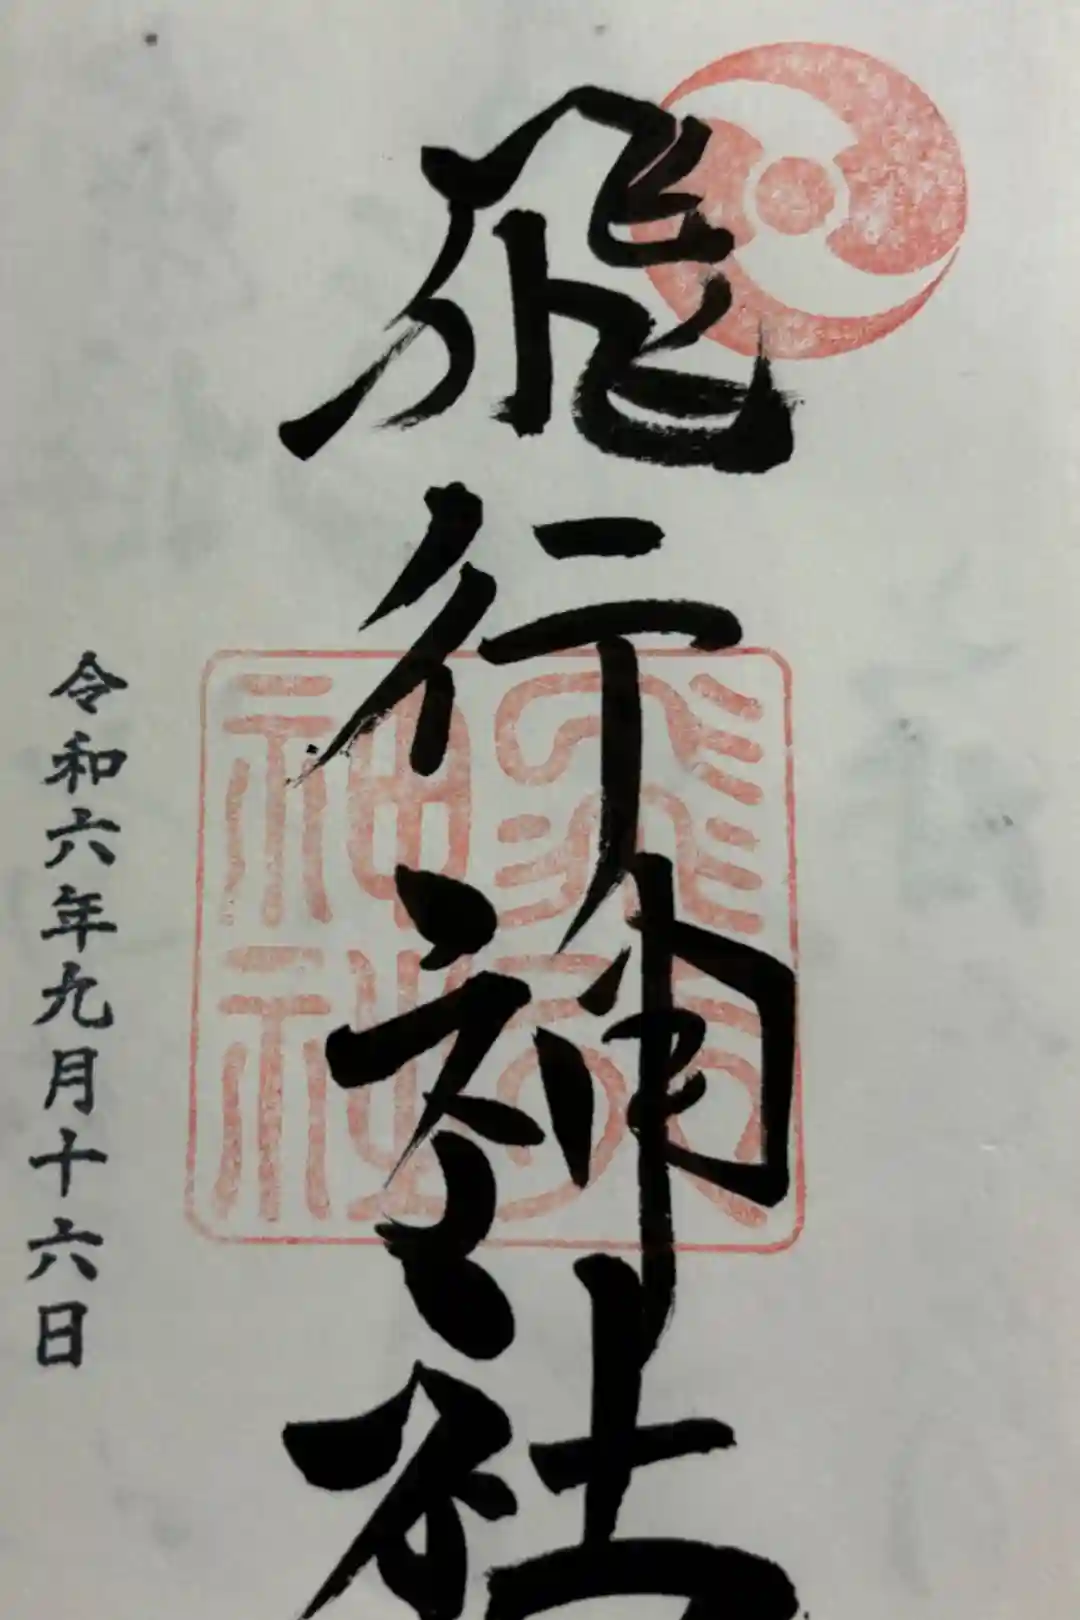 飛行神社
飛行
神社
令和六年九月十六日